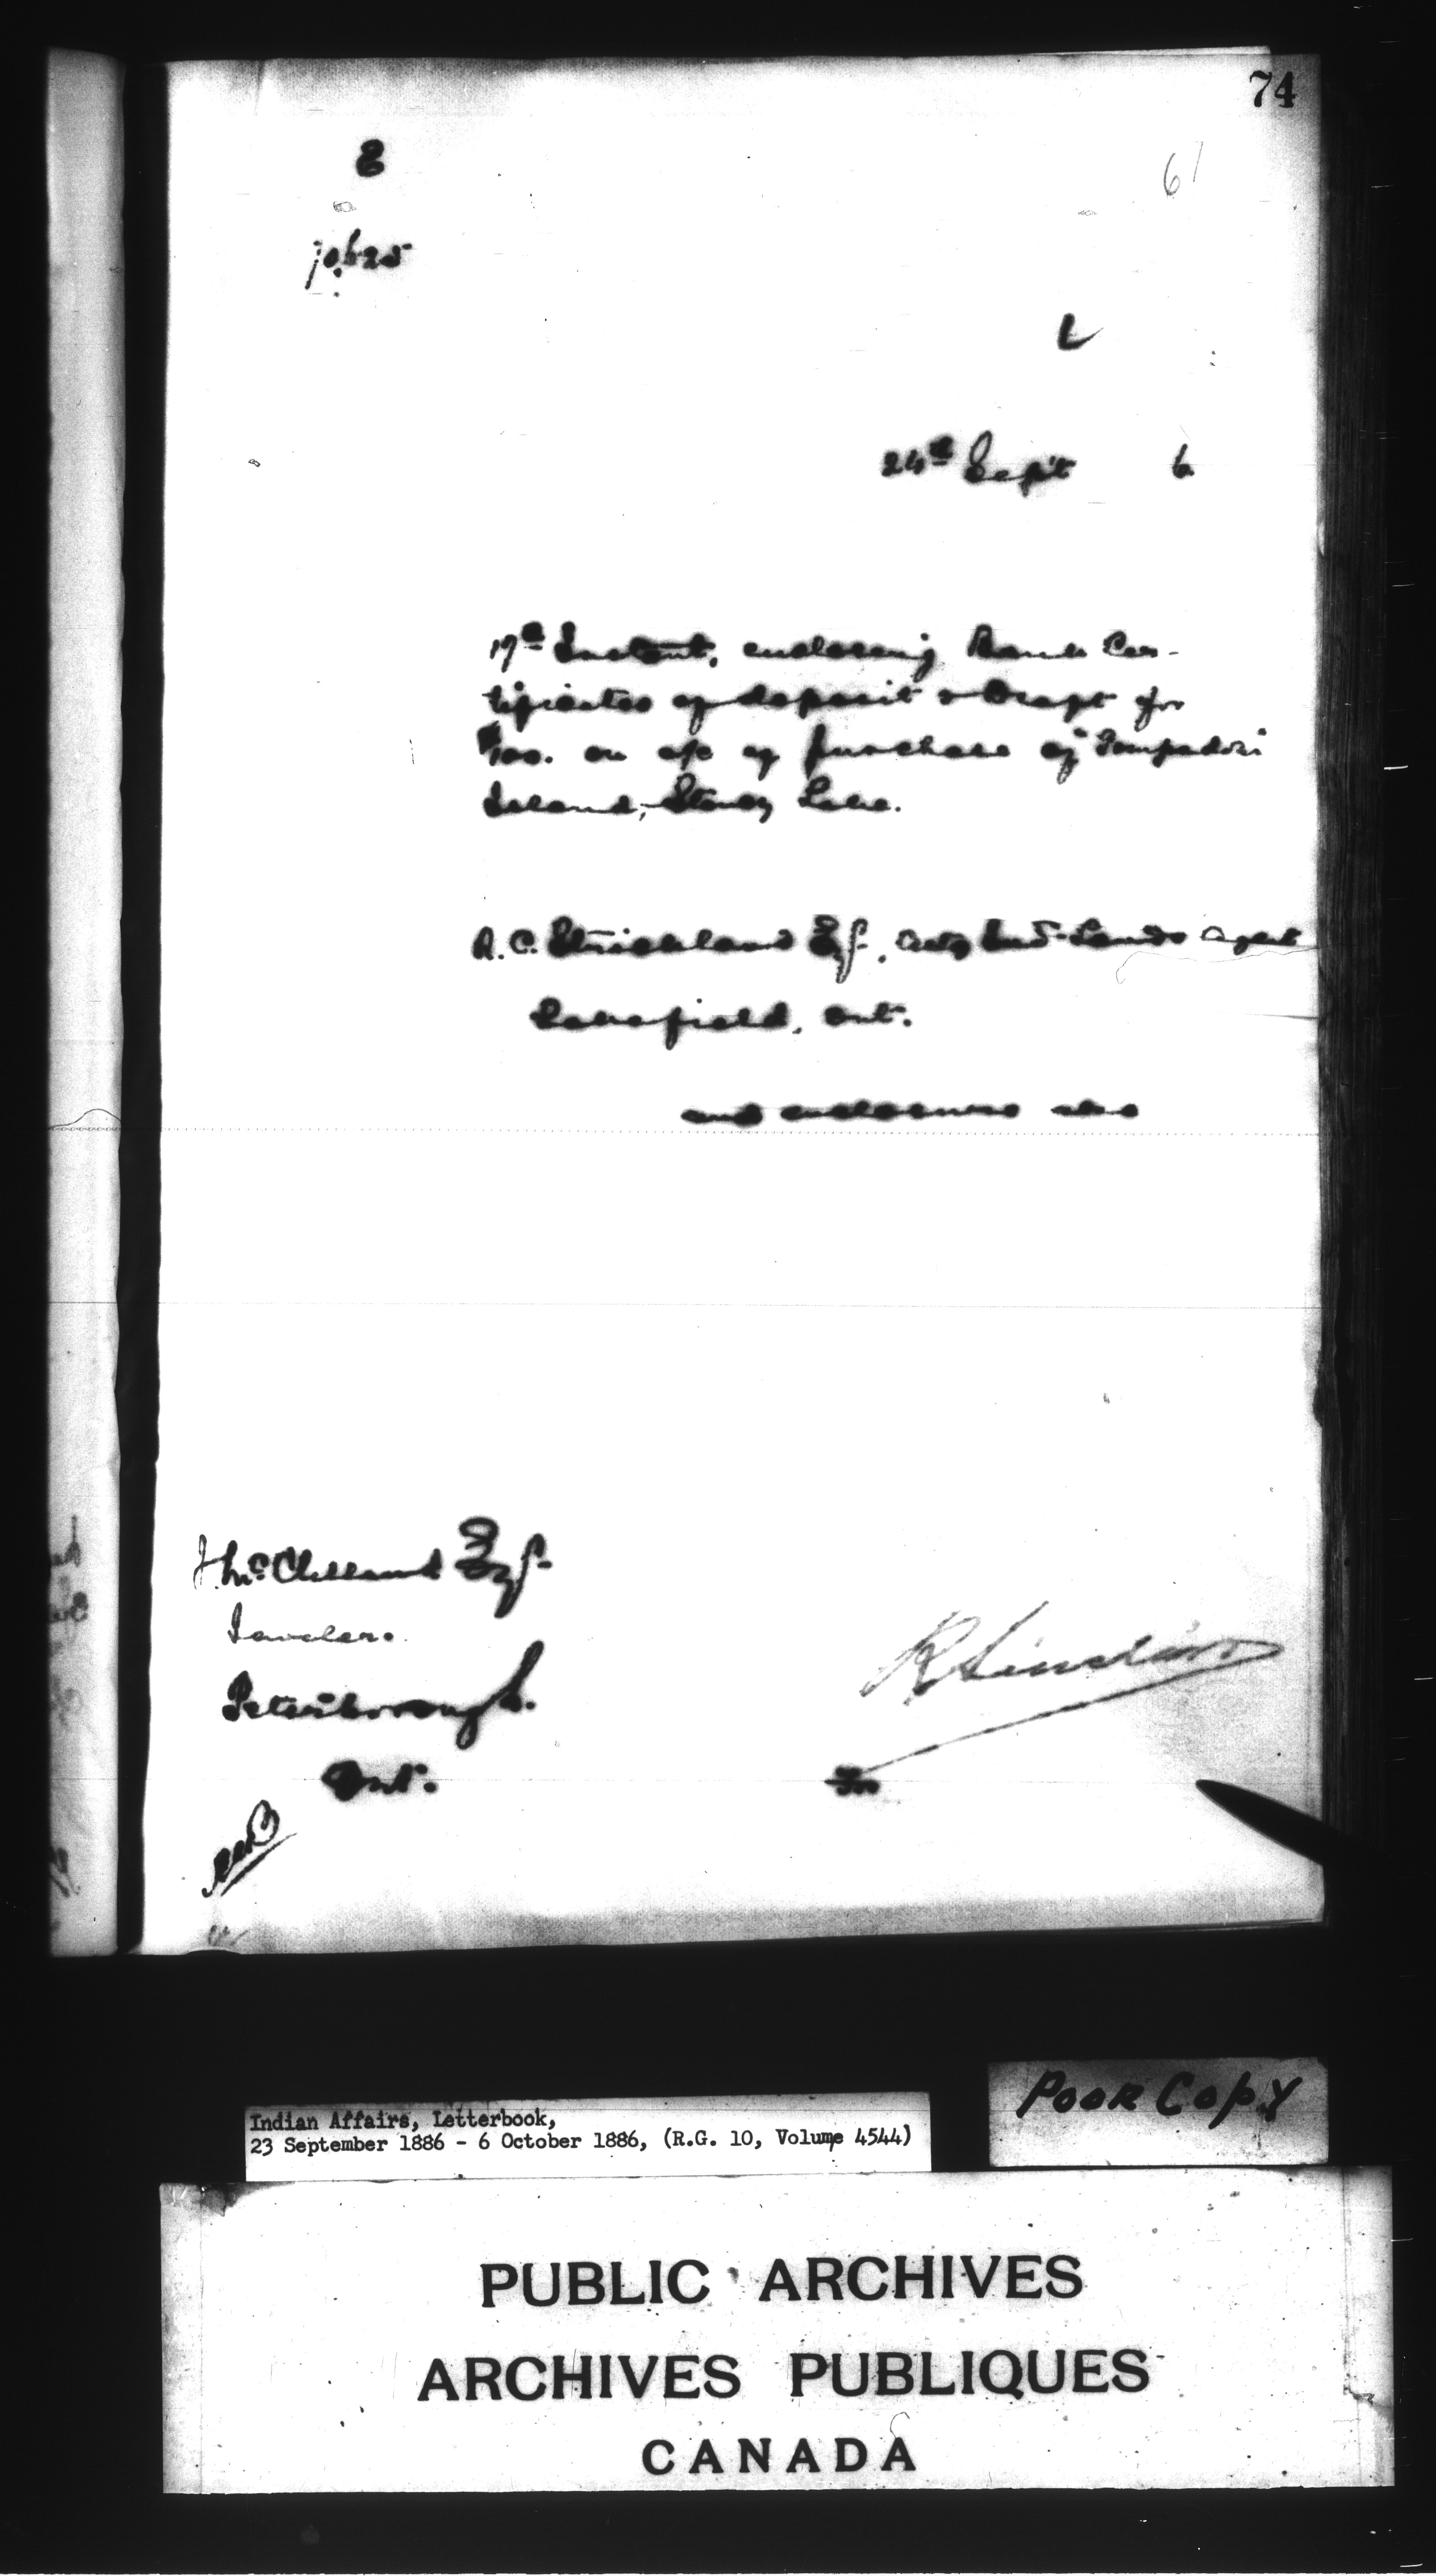 74
E
61
70625
L
24th Sept 6
17th Instant, enclosing Bank Cer-
tificates of deposit & Draft for
$100. on a/c of purchase of
Island, Stoney Lake.
R. C. Strickland Esq. Actg Ind. Lands Agent
Lakefield, Ont.
and enclosures also
J. McClelland Esq.
Jeweler.
Peterborough.
Ont.
R Sinclair
For
Indian Affairs, Letterbook,
23 September 1886 - 6 October 1886, (R.G. 10, Volume 4544)
POOR COPY
PUBLIC ARCHIVES
ARCHIVES PUBLIQUES
CANADA